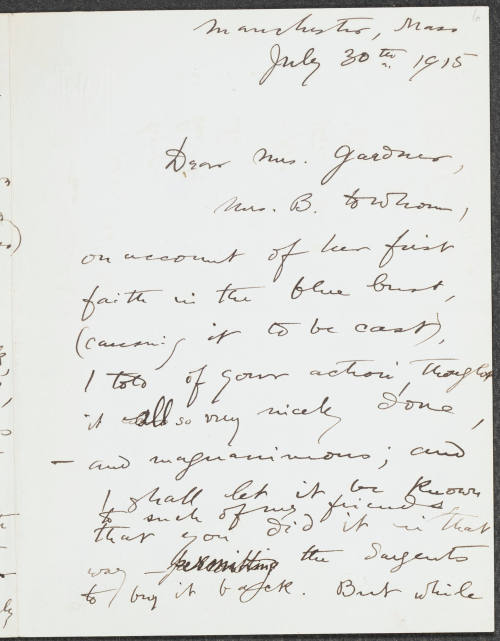 Manchester, Mass
July 30th 1915
Dear Mrs. Gardner,
Mrs. B. to whom,
on account of her first
faith in the blue bust,
(causing it to be cast),
I told of your action, thought
it all so very nicely done,
– and magnanimous; and
I shall let it be known
to such of my friends
that you did it in that
way – permitting the Sargents
to buy it back. But while